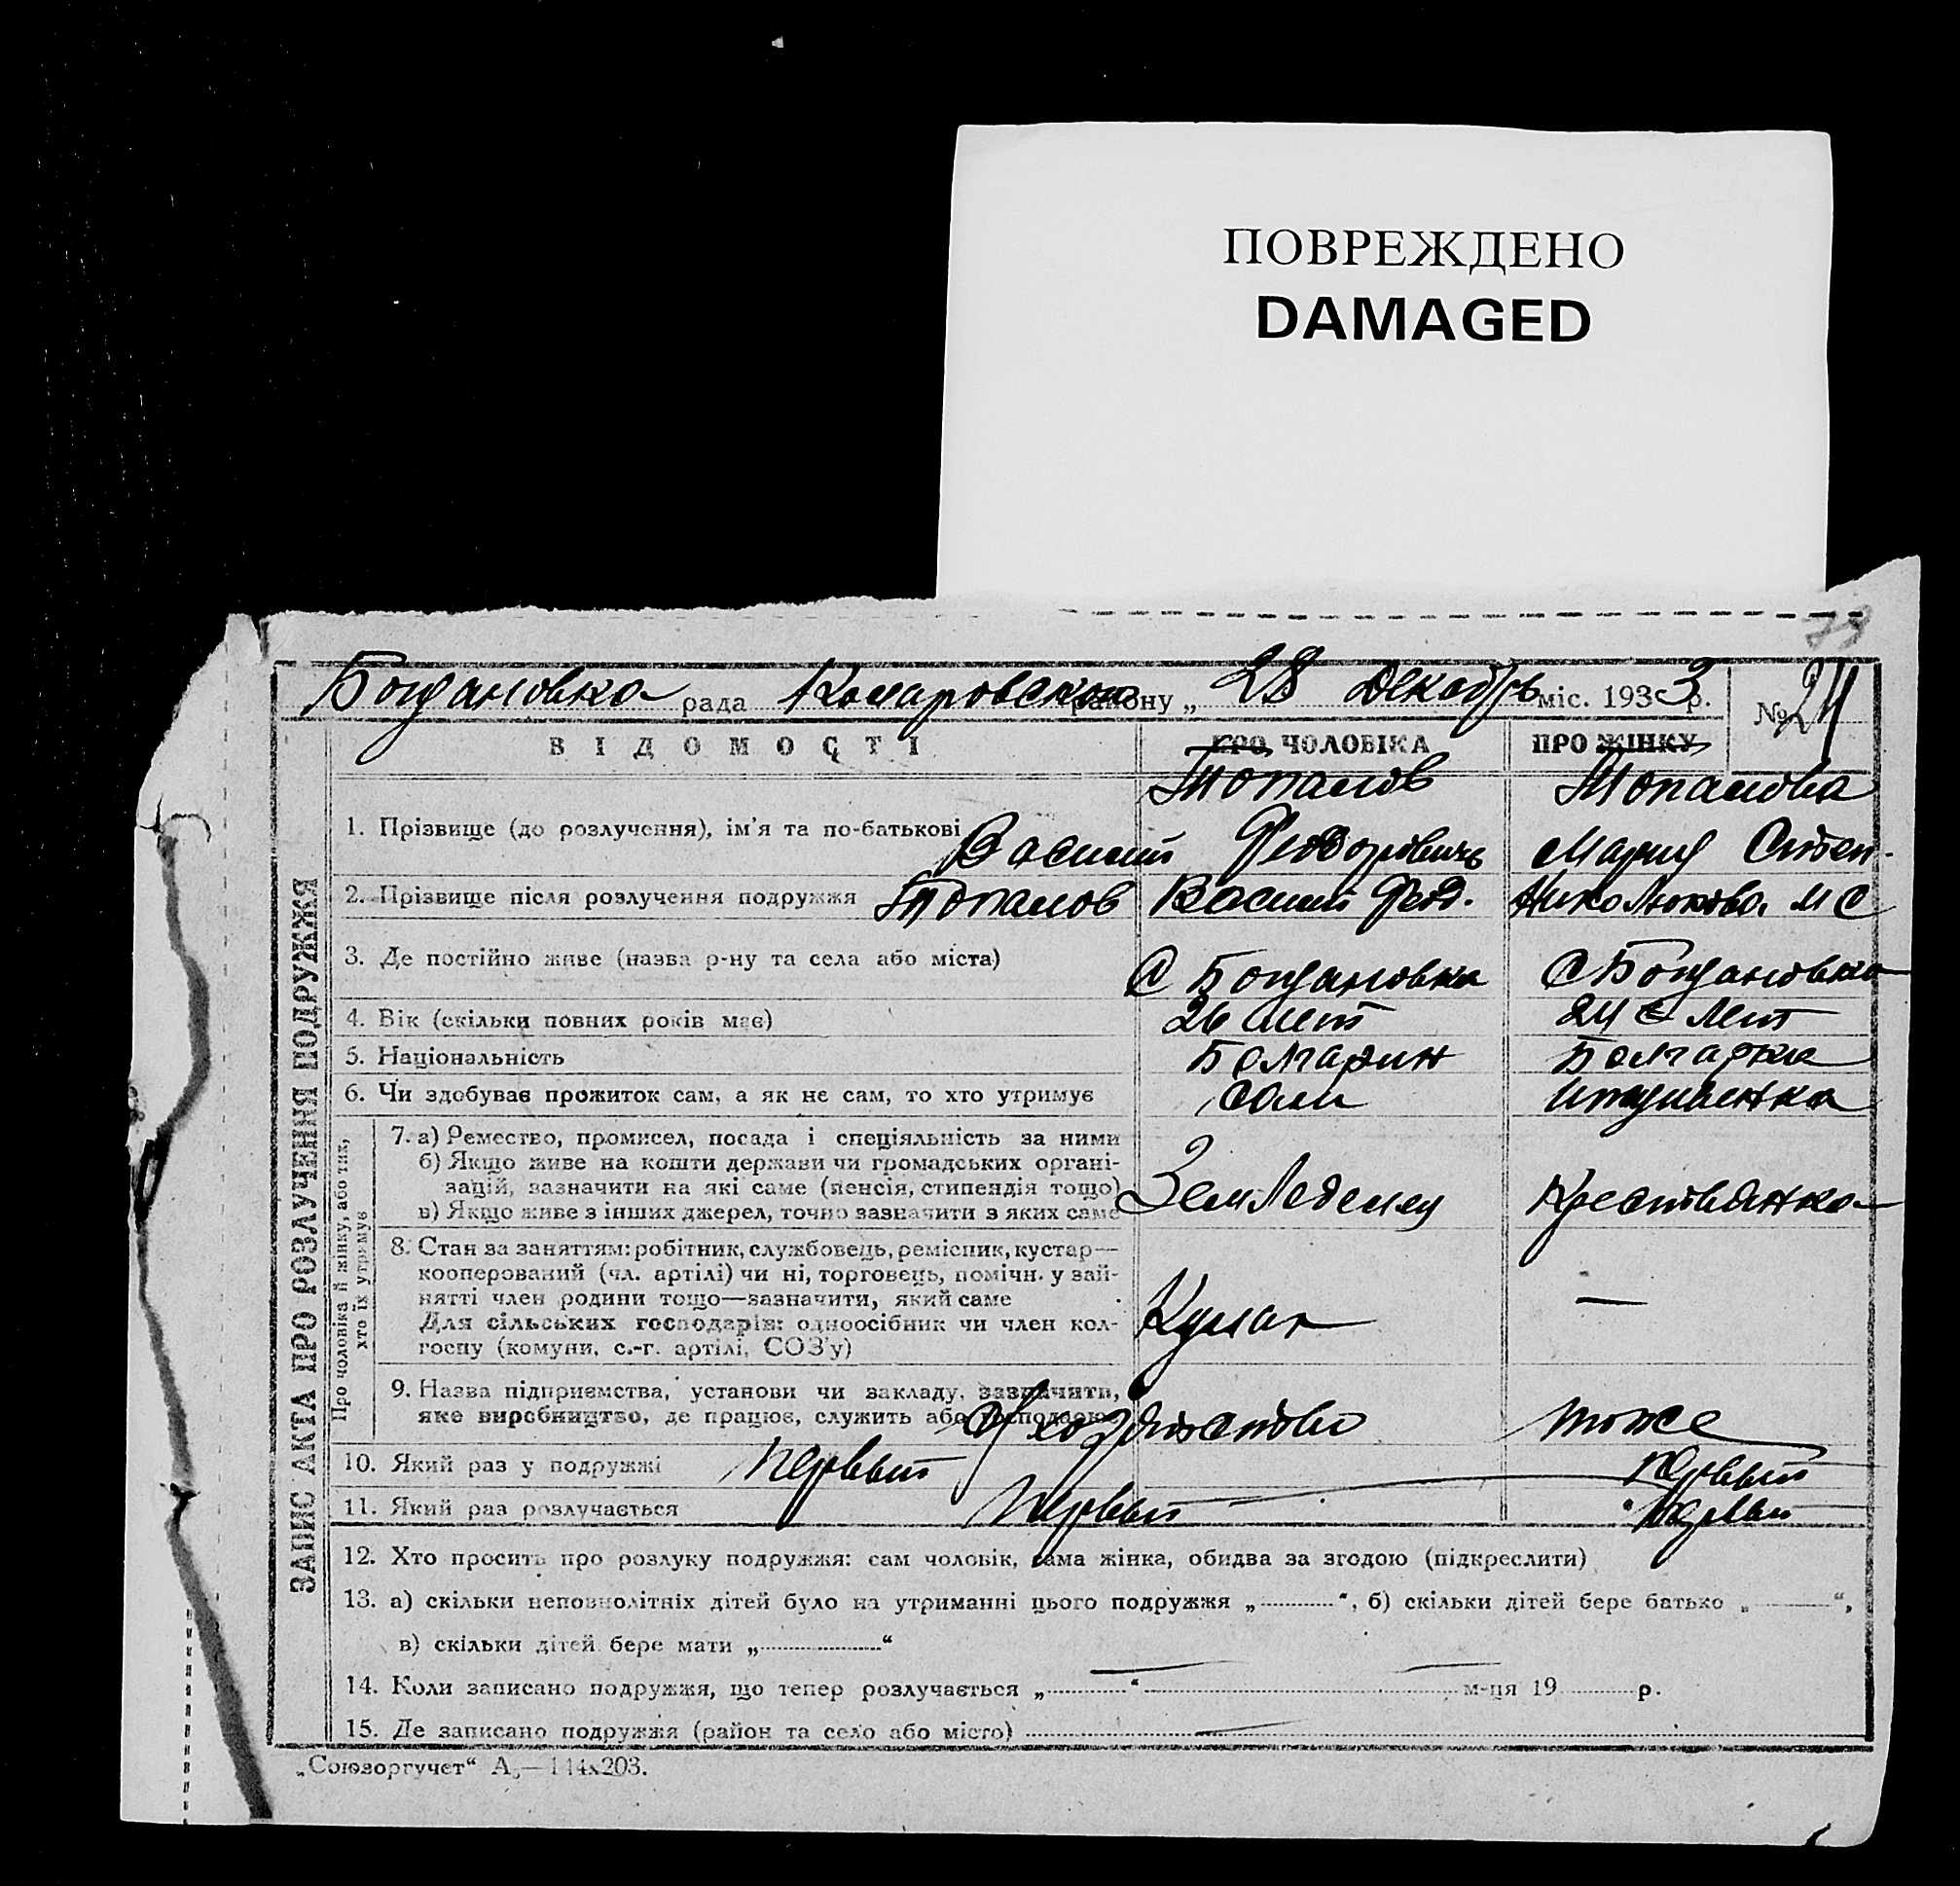 ПОВРЕЖДЕНО
DAMAGED
79
Богдановка рада Комаровского району „ 28 Декабрь міс. 1933 р. № 24
ЗАПИС АКТА ПРО РОЗЛУЧЕННЯ ПОДРУЖЖЯ
ВІДОМОСТІ ПРО ЧОЛОВІКА ПРО ЖІНКУ
Топалов Топалова
1. Прізвище (до розлучення), ім'я та по-батькові Василий Феодорович Мария Степ.
2. Прізвище після розлучення подружжя Топалов Василий Фед. Николюкова М С
3. Де постійно живе (назва р-ну та села або міста) С Богдановка С Богдановка
4. Вік (скільки повних років має) 26 лет 24 лет
5. Національність Болгарин Болгарка
6. Чи здобуває прожиток сам, а як не сам, то хто утримує Сам иждивенка
Про чоловіка й жінку, або тих, хто їх утримує
7. а) Ремество, промисел, посада і спеціяльність за ними
б) Якщо живе на кошти держави чи громадських органі-
зацій, зазначити на які саме (пенсія, стипендія тощо)
в) Якщо живе з інших джерел, точно зазначити з яких саме
Земледелец Крестьянка
8. Стан за заняттям: робітник, службовець, ремісник, кустар—
кооперований (чл. артілі) чи ні, торговець, помічн. у зай-
нятті член родини тощо—зазначити, який саме
Для сільських господарів: одноосібник чи член кол-
госпу (комуни, с.-г. артілі, СОЗ'у)
Кулак —
9. Назва підприємства, установи чи закладу, зазначити,
яке виробництво, де працює, служить або господарює
хозяйство тоже
10. Який раз у подружжі первый первый
11. Який раз розлучається первый первый
12. Хто просить про розлуку подружжя: сам чоловік, сама жінка, обидва за згодою (підкреслити)
13. а) скільки неповнолітніх дітей було на утриманні цього подружжя „..........“, б) скільки дітей бере батько „..........“,
в) скільки дітей бере мати „..........“
14. Коли записано подружжя, що тепер розлучається „..........“ .......... м-ця 19 .......... р.
15. Де записано подружжя (район та село або місто) ..........
„Союзоргучет“ А5—144х203.